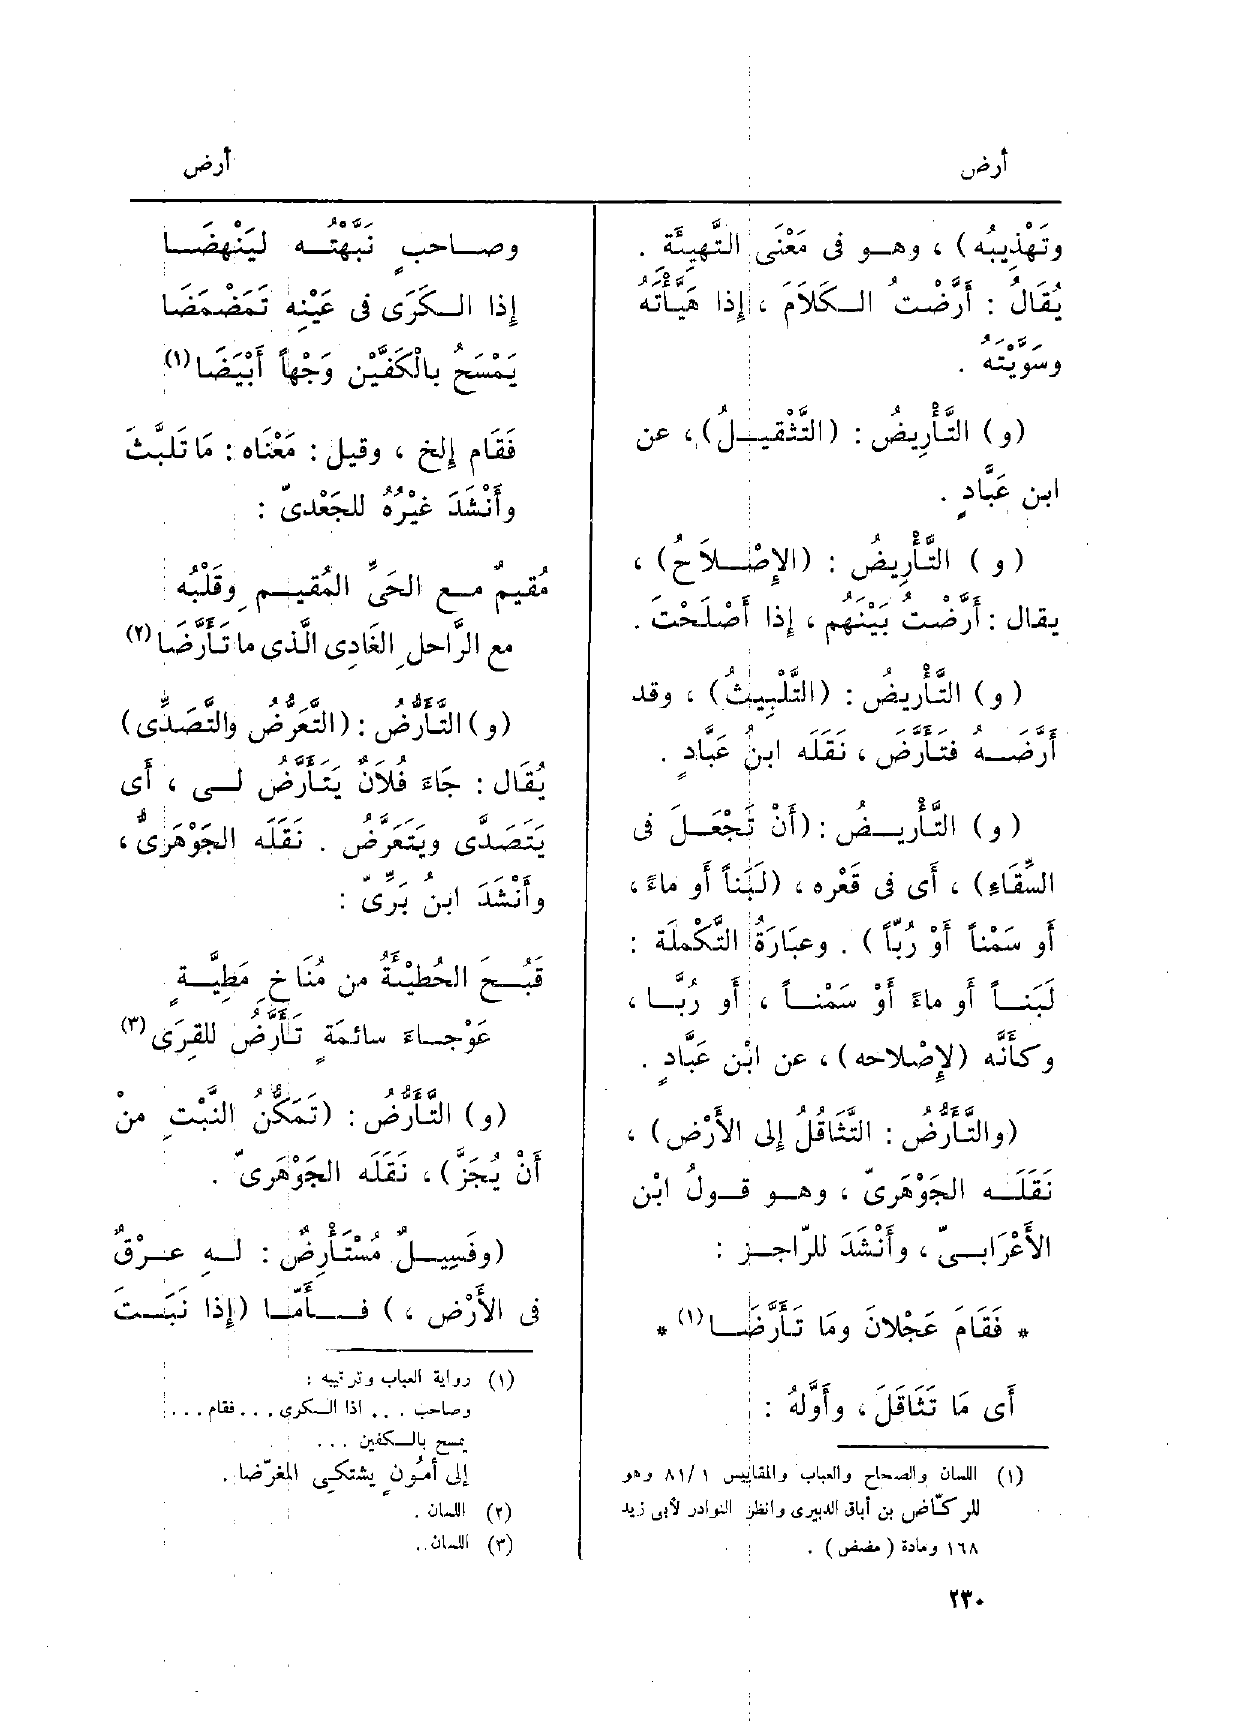 أرض
أرض
وتَهْذِيبُه) ، وهـو فى مَعْنَى التَّهْيِئَة .
يُقَالُ : أَرَّضْتُ الـكَلاَمَ ، إذا هَيَّأْتَه
وسَوَّيْتَه .
(و) التَّأْرِيضُ : (التَّثْقِيـلُ) ، عن
ابن عَبَّادٍ .
(و) التَّأْرِيضُ : (الإِصْـلاَحُ) ،
يقال : أَرَّضْتُ بَيْنَهُم ، إذا أَصْلَحْتَ .
(و) التَّأْرِيضُ : (التَّلْبِيثُ) ، وقد
أَرَّضَـه فتَأَرَّضَ ، نَقَلَه ابنُ عَبَّادٍ .
(و) التَّأْرِيـضُ : (أَنْ تَجْعَـلَ فى
السِّقَاءِ) ، أَى فى قَعْرِه ، (لَبَناً أَو ماءً ،
أَو سَمْناً أَوْ رُبّاً) . وعِبَارَةُ التَّكْمِلَة :
لَبَنـاً أَو ماءً أَوْ سَمْنـاً ، أَو رُبًّـا ،
وكأَنَّه (لإِصْلاحه) ، عن ابْن عَبَّادٍ .
(والتَّأَرُّضُ : التَّثَاقُلُ إلى الأَرْض) ،
نَقَلَـه الجَوْهَرِىّ ، وهـو قـولُ ابْن
الأَعْرَابـىّ ، وأَنْشَدَ للرّاجـز :
* فَقَامَ عَجْلانَ ومَا تَأَرَّضَـا (١) *
أَى مَا تَثَاقَلَ ، وأَوَّلُهُ :
(١) اللسان والصحاح والعباب والمقاييس ١ /٨١ وهو
للركّاض بن أباق الدبيرى وانظر النوادر لأبى زيد
١٦٨ ومادة (مضض) .
وصـاحبٍ نَبَّهْتُـه لِيَنْهَضَـا
إذا الـكَرَى فى عَيْنِه تَمَضْمَضَا
يَمْسَحُ بالْكَفَّيْنِ وَجْهاً أَبْيَضَا (١)
فَقَام إلخ ، وقيل : مَعْنَاه : مَا تَلَبَّثَ
وأَنْشَدَ غَيْرُهُ للجَعْدِىّ :
مُقِيمٌ مـع الحَىِّ المُقِيـمِ وقَلْبُه
مع الرَّاحلِ الغَادِى الَّذى ما تَأَرَّضَا (٢)
(و) التَّأَرُّضُ : (التَّعَرُّضُ والتَّصَدِّى)
يُقَال : جَاءَ فُلاَنٌ يَتَأَرَّضُ لـى ، أَى
يَتَصَدَّى ويَتَعَرَّضُ . نَقَلَه الجَوْهَرِىُّ ،
وأَنْشَدَ ابنُ بَرِّىّ :
قَبُـحَ الحُطَيْئَةُ من مُنَاخِ مَطِيَّـةٍ
عَوْجـاءَ سائمَةٍ تَأَرَّضُ للقِرَى (٣)
(و) التَّأَرُّضُ : (تَمَكُّنُ النَّبْتِ مِنْ
أَنْ يُجَزَّ) ، نَقَلَه الجَوْهَرِىّ .
(وفَسِيـلٌ مُسْتَأْرِضٌ : لـه عِـرْقٌ
فى الأَرْض ، ) فــأَمّـا (إذا نَبَـتَ
(١) رواية العباب وترتيبه :
وصاحب ... اذا الـكرى ... فقام ...
يمسح بالـكفين ...
إلى أمُونٍ يشتكى المغرّضا .
(٢) اللسان .
(٣) اللسان .
٢٣٠